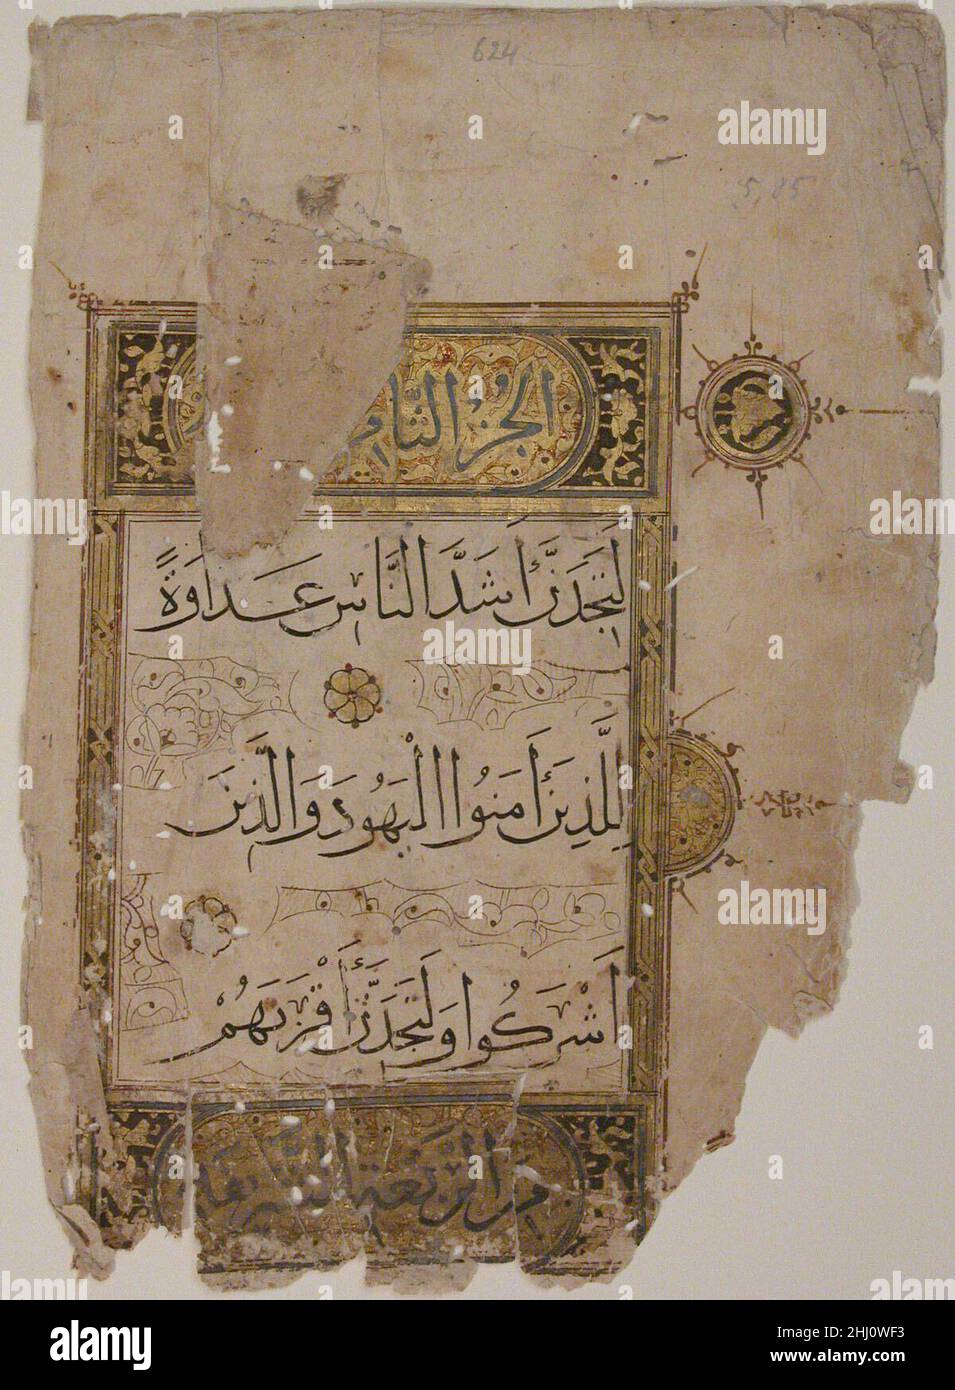 624
5,85
الجزء الثامن
لَتَجِدَنَّ أَشَدَّ النَّاسِ عَدَاوَةً
لِلَّذِينَ أَمَنُوا الْيَهُودَ وَالَّذِينَ
أَشْرَكُوا وَلَتَجِدَنَّ أَقْرَبَهُمْ
من الربعة الشريفة
alamy
Image ID: 2HJ0WF3
www.alamy.com